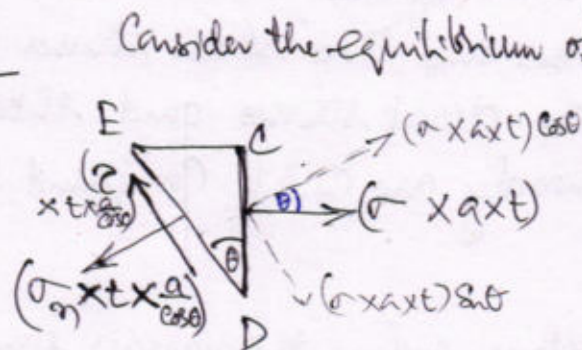 Consider the equilibrium of
E
C
(σ x a x t) Cosθ
(τ
x t x a/cosθ)
θ)
(σ x a x t)
θ
(σn x t x a/cosθ)
(σ x a x t) Sinθ
D